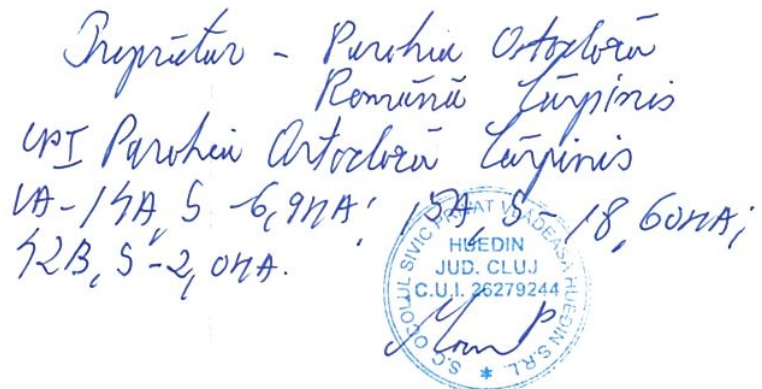 Proprietar - Parohia Ortodoxă
Română Cărpinis
UPI Parohia Ortodoxă Cărpinis
UA-14A, S-6,9HA; 15A, S-18,60HA;
42B, S-2,0HA.
S.C. OCOLUL SILVIC PRIVAT VLĂDEASA HUEDIN S.R.L.
HUEDIN
JUD. CLUJ
C.U.I. 26279244